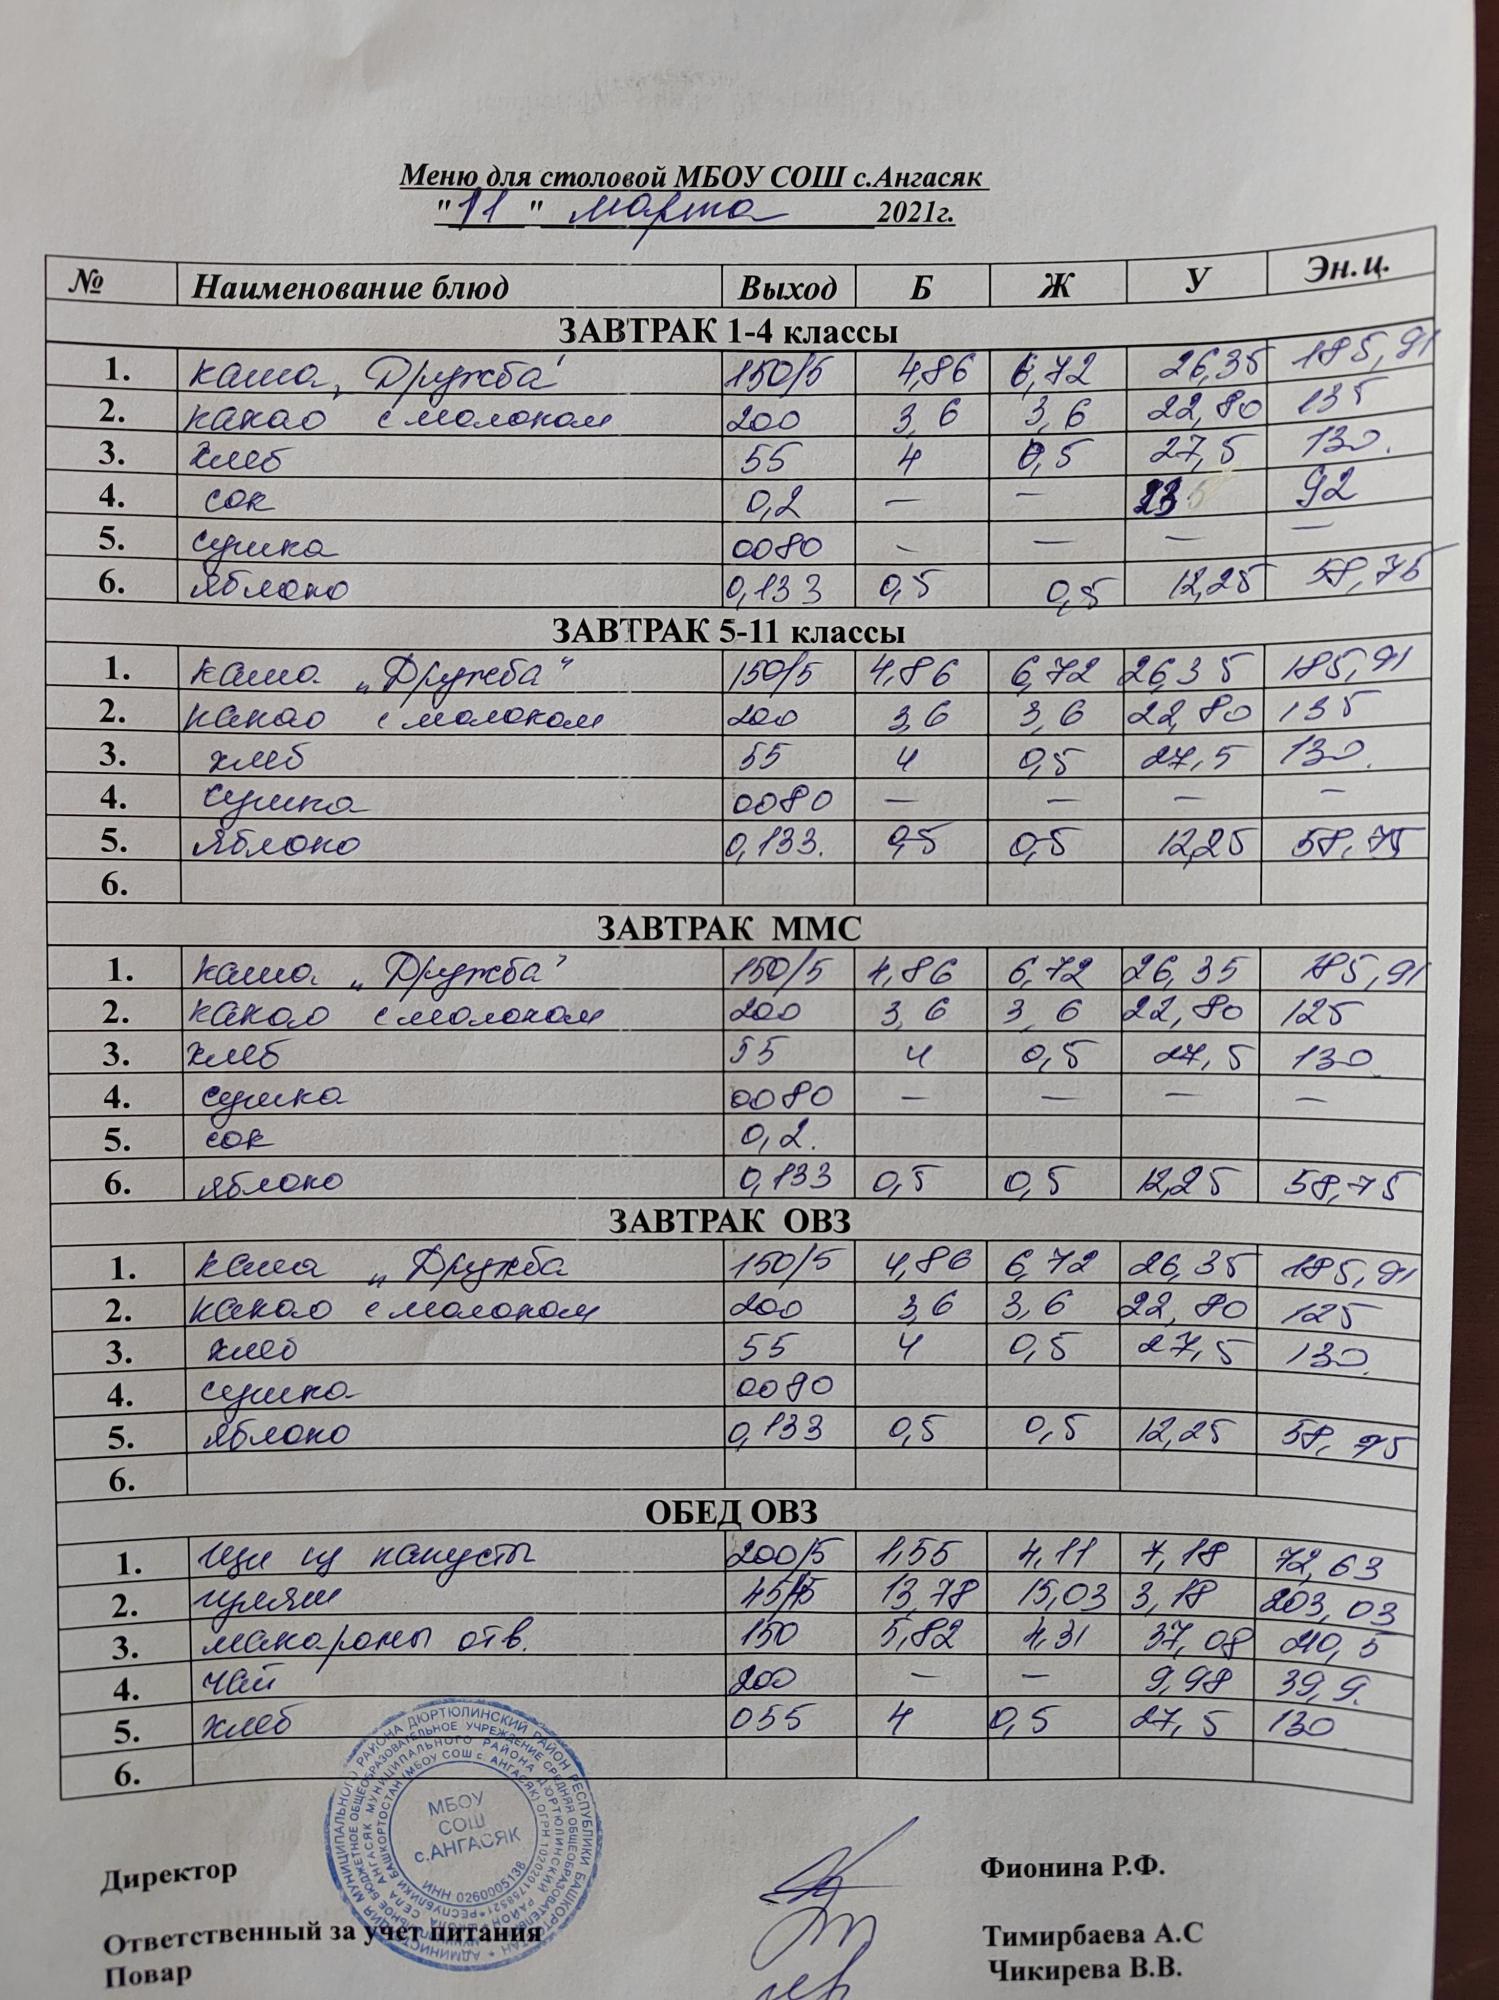 Меню для столовой МБОУ СОШ с.Ангасяк
"11" марта 2021г.
№ Наименование блюд Выход Б Ж У Эн.ц.
ЗАВТРАК 1-4 классы
1. каша „Дружба" 150/5 4,86 6,72 26,35 185,91
2. какао с молоком 200 3,6 3,6 22,80 135
3. хлеб 55 4 0,5 27,5 130.
4. сок 0,2 — — 23 92
5. сушка 0080 — — — —
6. яблоко 0,133 0,5 0,5 12,25 58,75
ЗАВТРАК 5-11 классы
1. каша „Дружба" 150/5 4,86 6,72 26,35 185,91
2. какао с молоком 200 3,6 3,6 22,80 135
3. хлеб 55 4 0,5 27,5 130.
4. сушка 0080 — — — —
5. яблоко 0,133. 0,5 0,5 12,25 58,75
6.
ЗАВТРАК ММС
1. каша „Дружба" 150/5 4,86 6,72 26,35 185,91
2. какао с молоком 200 3,6 3,6 22,80 125
3. хлеб 55 4 0,5 27,5 130.
4. сушка 0080 — — — —
5. сок 0,2.
6. яблоко 0,133 0,5 0,5 12,25 58,75
ЗАВТРАК ОВЗ
1. каша „Дружба 150/5 4,86 6,72 26,35 185,91
2. какао с молоком 200 3,6 3,6 22,80 125
3. хлеб 55 4 0,5 27,5 130.
4. сушка 0080
5. яблоко 0,133 0,5 0,5 12,25 58,75
6.
ОБЕД ОВЗ
1. щи из капусты 200/5 1,55 4,11 7,18 72,63
2. гуляш 45/45 13,78 15,03 3,18 203,03
3. макароны отв. 150 5,82 4,31 37,08 210,5
4. чай 200 — — 9,98 39,9.
5. хлеб 055 4 0,5 27,5 130
6.
МБОУ
СОШ
с.АНГАСЯК
ИНН 0260005138
Директор Фионина Р.Ф.
Ответственный за учет питания Тимирбаева А.С
Повар Чикирева В.В.